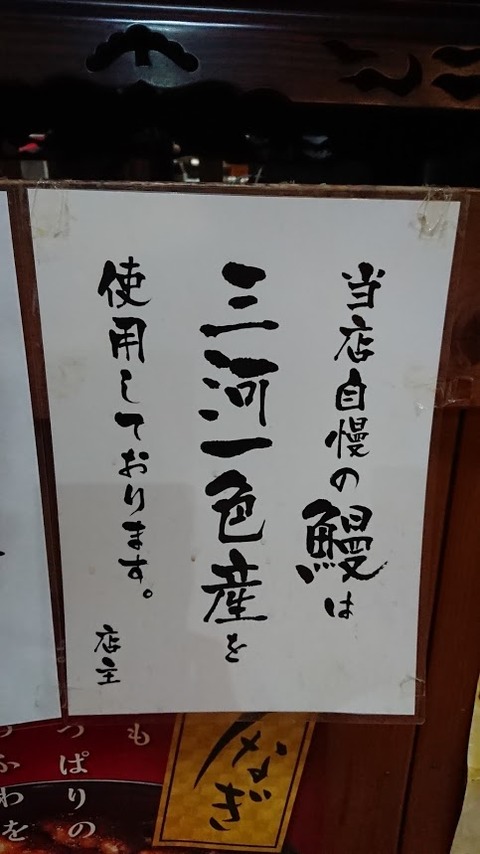 当店自慢の鰻は
三河一色産を
使用しております。
店主
なぎ
も
っぱりの
ふわを